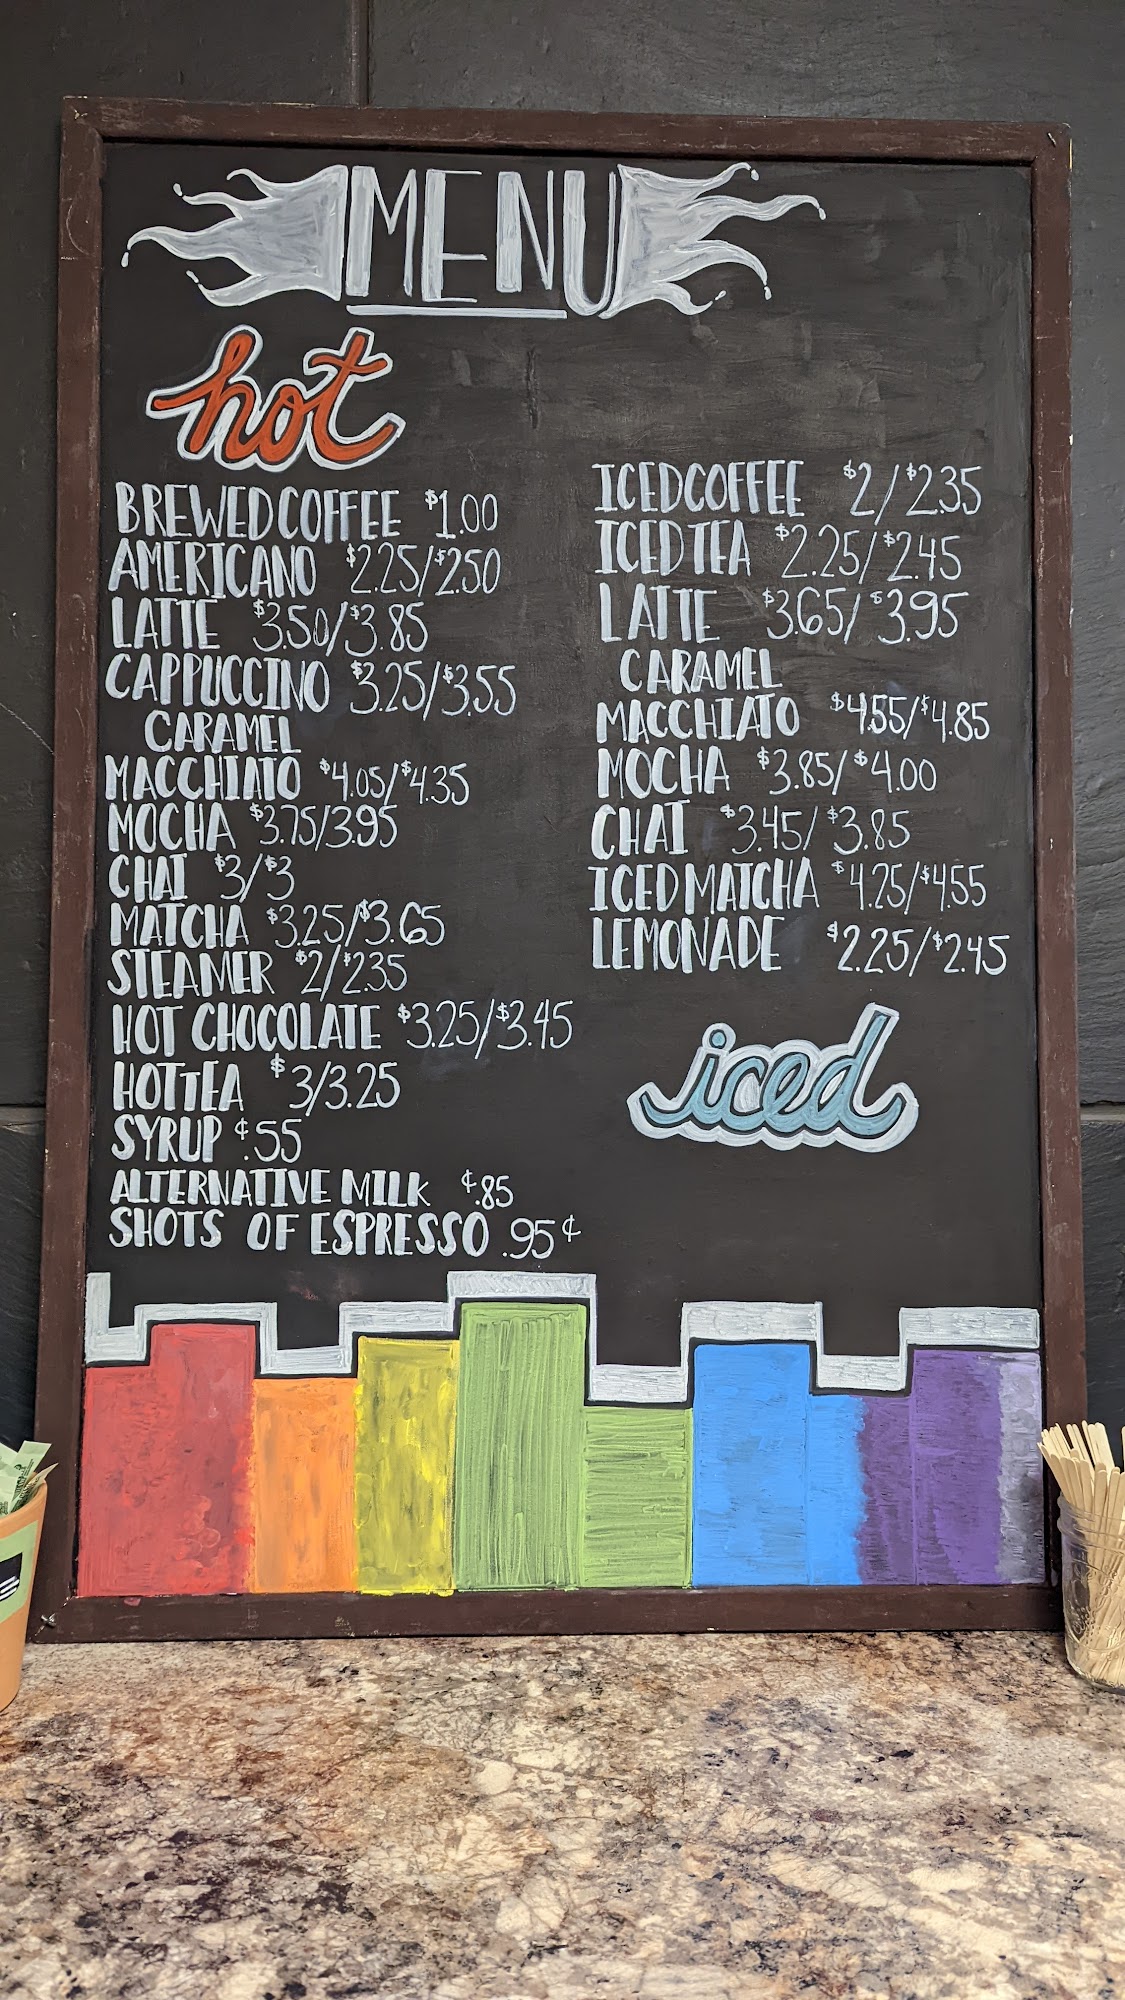 MENU
hot
BREWED COFFEE $1.00
AMERICANO $2.25/$2.50
LATTE $3.50/$3.85
CAPPUCCINO $3.25/$3.55
CARAMEL
MACCHIATO $4.05/$4.35
MOCHA $3.75/3.95
CHAI $3/$3
MATCHA $3.25/$3.65
STEAMER $2/$2.35
HOT CHOCOLATE $3.25/$3.45
HOT TEA $3/3.25
SYRUP ¢.55
ALTERNATIVE MILK ¢.85
SHOTS OF ESPRESSO .95¢
ICED COFFEE $2/$2.35
ICED TEA $2.25/$2.45
LATTE $3.65/$3.95
CARAMEL
MACCHIATO $4.55/$4.85
MOCHA $3.85/$4.00
CHAI $3.45/$3.85
ICED MATCHA $4.25/$4.55
LEMONADE $2.25/$2.45
iced